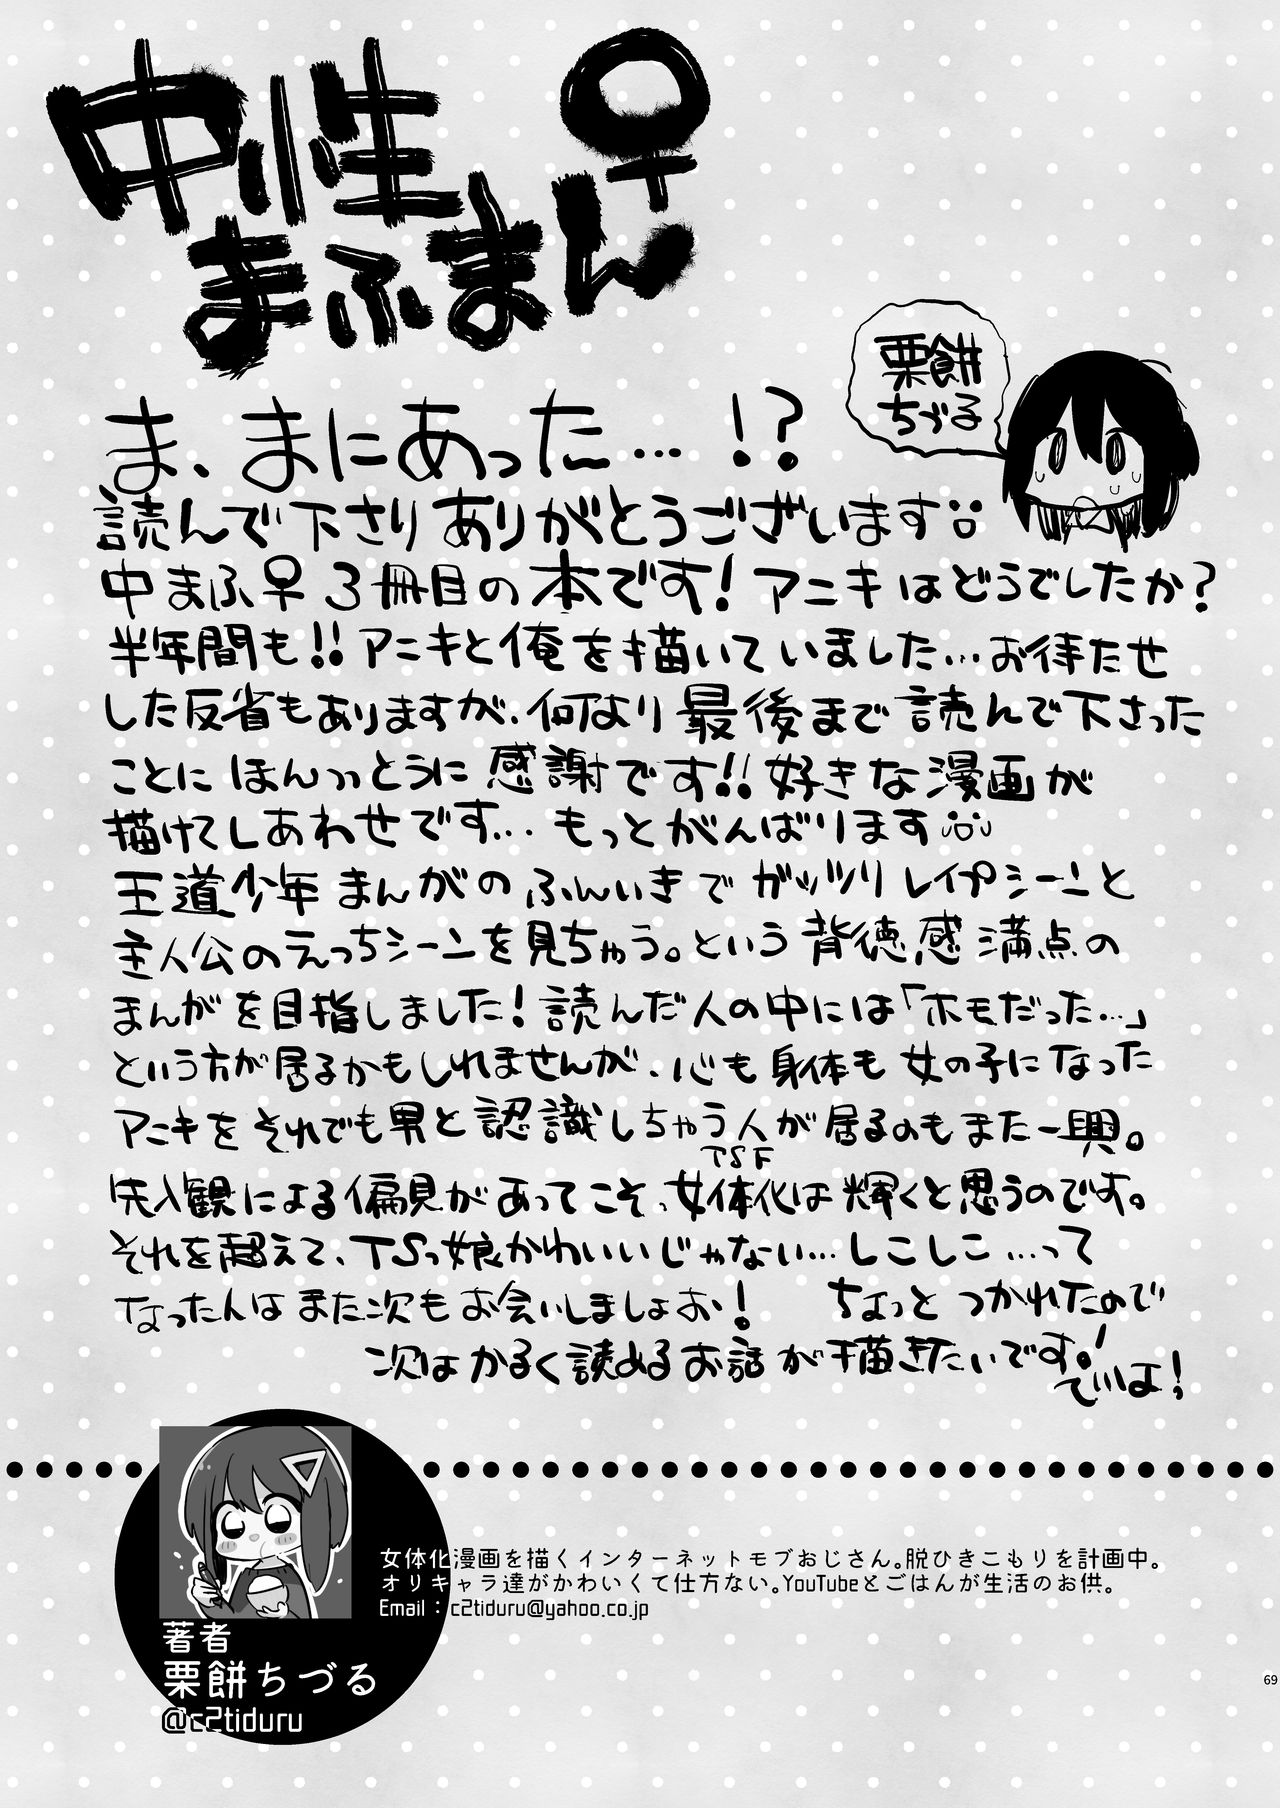 中性
まふまん♀
栗餅
ちづる
ま、まにあった…!?
読んで下さりありがとうございます
中まふ♀3冊目の本です!アニキはどうでしたか?
半年間も!!アニキと俺を描いていました…お待たせ
した反省もありますが、何より最後まで読んで下さった
ことにほんっっとうに感謝です!!好きな漫画が
描けてしあわせです…もっとがんばります
王道少年まんがのふんいきでガッツリレイプシーンと
主人公のえっちシーンを見ちゃう。という背徳感満点の
まんがを目指しました!読んだ人の中には「ホモだった…」
という方が居るかもしれませんが、心も身体も女の子になった
アニキをそれでも男と認識しちゃう人が居るのもまた一興。
TSF
先入観による偏見があってこそっ女体化は輝くと思うのです。
それを超えて、TSっ娘かわいいじゃない…しこしこ…って
なったんはまた次もお会いしましょお!
ちょっとつかれたので
次はかるく読めるお話が描きたいです!
でいは!
女体化漫画を描くインターネットモブおじさん。脱ひきこもりを計画中。
オリキャラ達がかわいくて仕方ない。YouTubeとごはんが生活のお供。
Email:c2tiduru@yahoo.co.jp
著者
栗餅ちづる
@c2tiduru
69